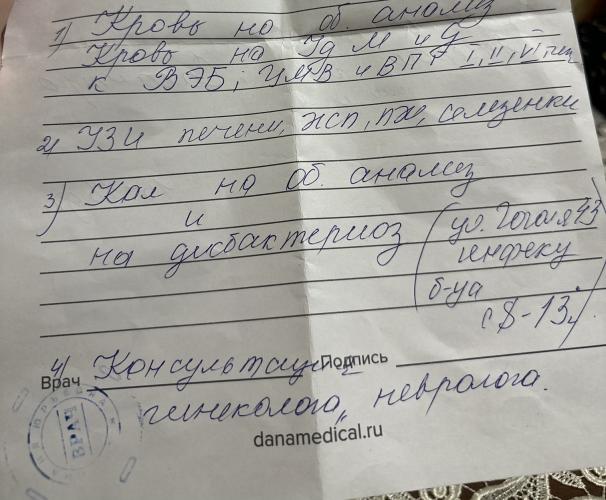 1) Кровь на об. анализ
Кровь на Ig M и G
к ВЭБ; ЦМВ и ВПГ I, II, VI тип
2) УЗИ печени, жсп, пж, селезенки
3) Кал на об. анализ
и
на дисбактериоз (ул. Гоголя 43
инфекц
б-ца
с 8-13ч)
4) Консультация
Врач Подпись
гинеколога, невролога.
ВРАЧ
danamedical.ru